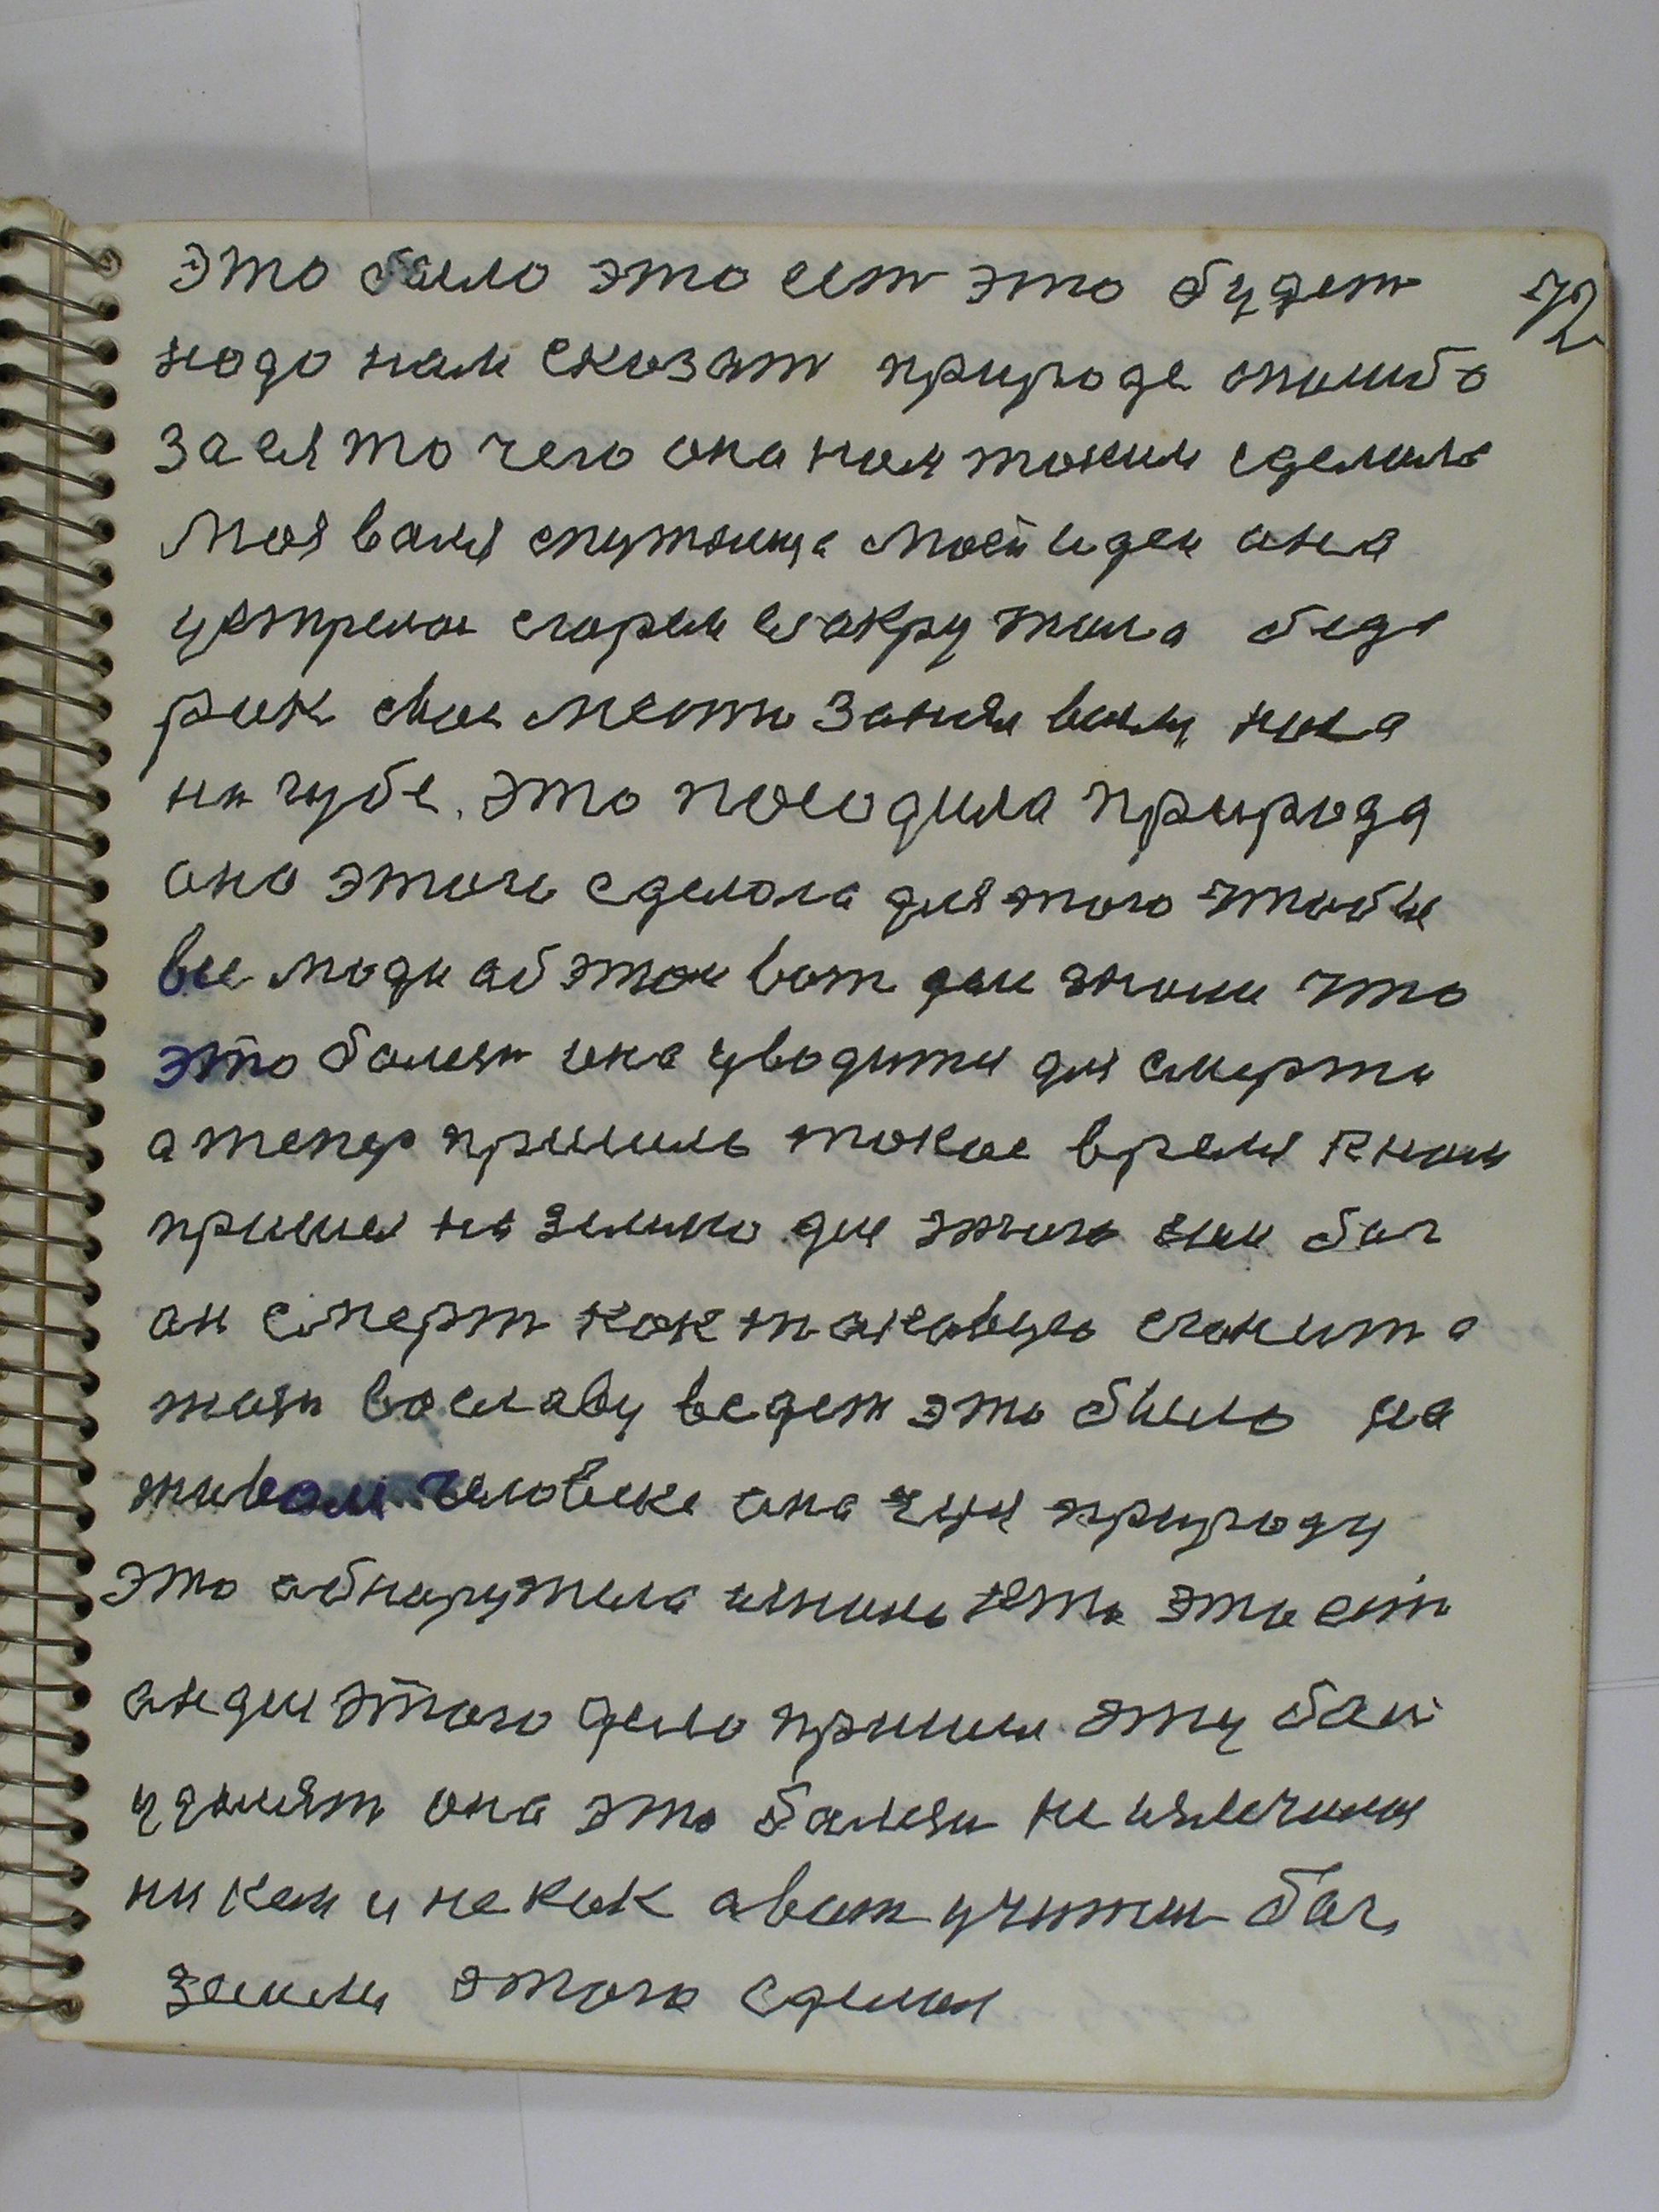 это было это ест это будет 72
надо нам сказат природе спасибо
за ея то чего она нам таким сделала
моя валя спутница моей идеи она
устрелае окружила беда
рак свое место заняв валу нила
на губе. это породила природа
она этого сделала для того чтобы
все люди об этом вот дле знали что
это болезн она уводится для смерти
а тепер пришло такое время к нам
пришел на землю для этого бог
он смерт как таковую сгонит а
жизн во славу ведет это было на
живом человеке она природу
это абнаружила это ест
он для этого дела пришел эту бол
удалят она эта болезн не излечимая
ни кем и не как а вот учител бог
земли этого сделал